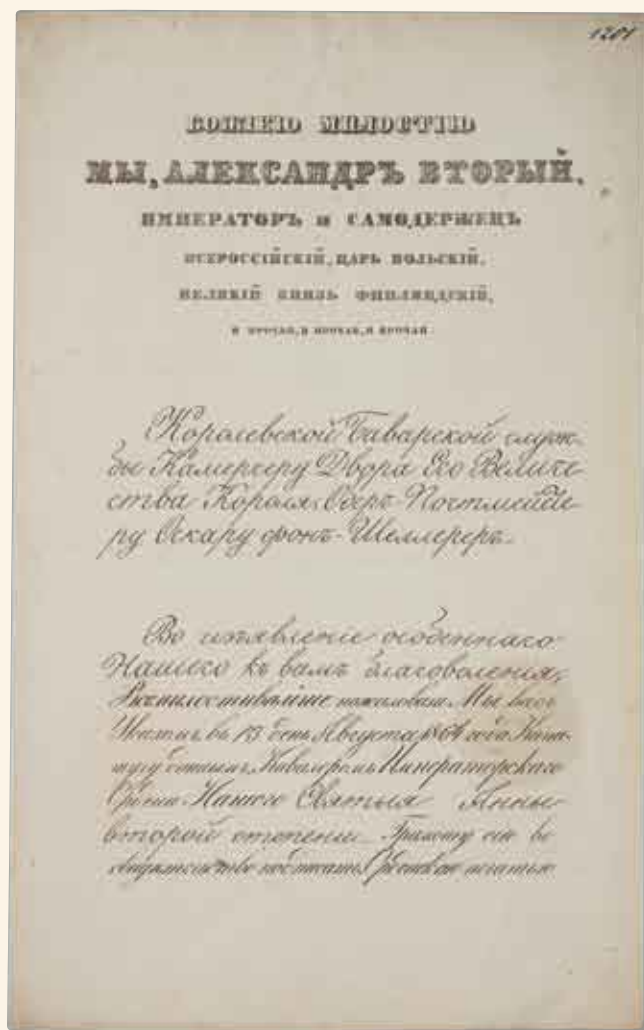 1201
БОЖІЕЮ МИЛОСТІЮ
МЫ, АЛЕКСАНДРЪ ВТОРЫЙ,
ИМПЕРАТОРЪ и САМОДЕРЖЕЦЪ
ВСЕРОССІЙСКІЙ, ЦАРЬ ПОЛЬСКІЙ,
ВЕЛИКІЙ КНЯЗЬ ФИНЛЯНДСКІЙ,
И ПРОЧАЯ, И ПРОЧАЯ, И ПРОЧАЯ
Королевской Баварской служ-
бы Камергеру Двора Его Величе
ства Короля, Оберъ-Постмейсте-
ру Оскару фонъ-Шеллереръ.
Во изъявленіе особеннаго
Нашего къ вамъ благоволенія,
Всемилостивѣйше пожаловали Мы васъ
Указомъ въ 13 день Августа 1864 года Капи-
тулу даннымъ, Кавалеромъ Императорскаго
Ордена Нашего Святыя Анны
второй степени. Грамоту сію во
свидѣтельство подписать, Орденскою печатью